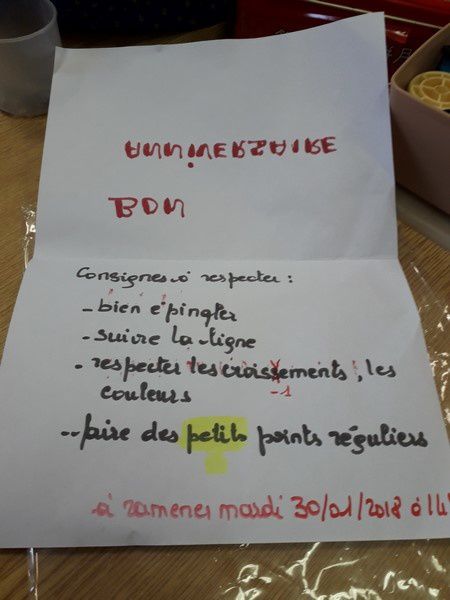 ANNIVERSAIRE
BON
Consignes à respecter :
- bien épingler
- suivre la ligne
- respecter les croissements, les
-1
couleurs
-- faire des petits points réguliers
à ramener mardi 30/01/2018 à 14